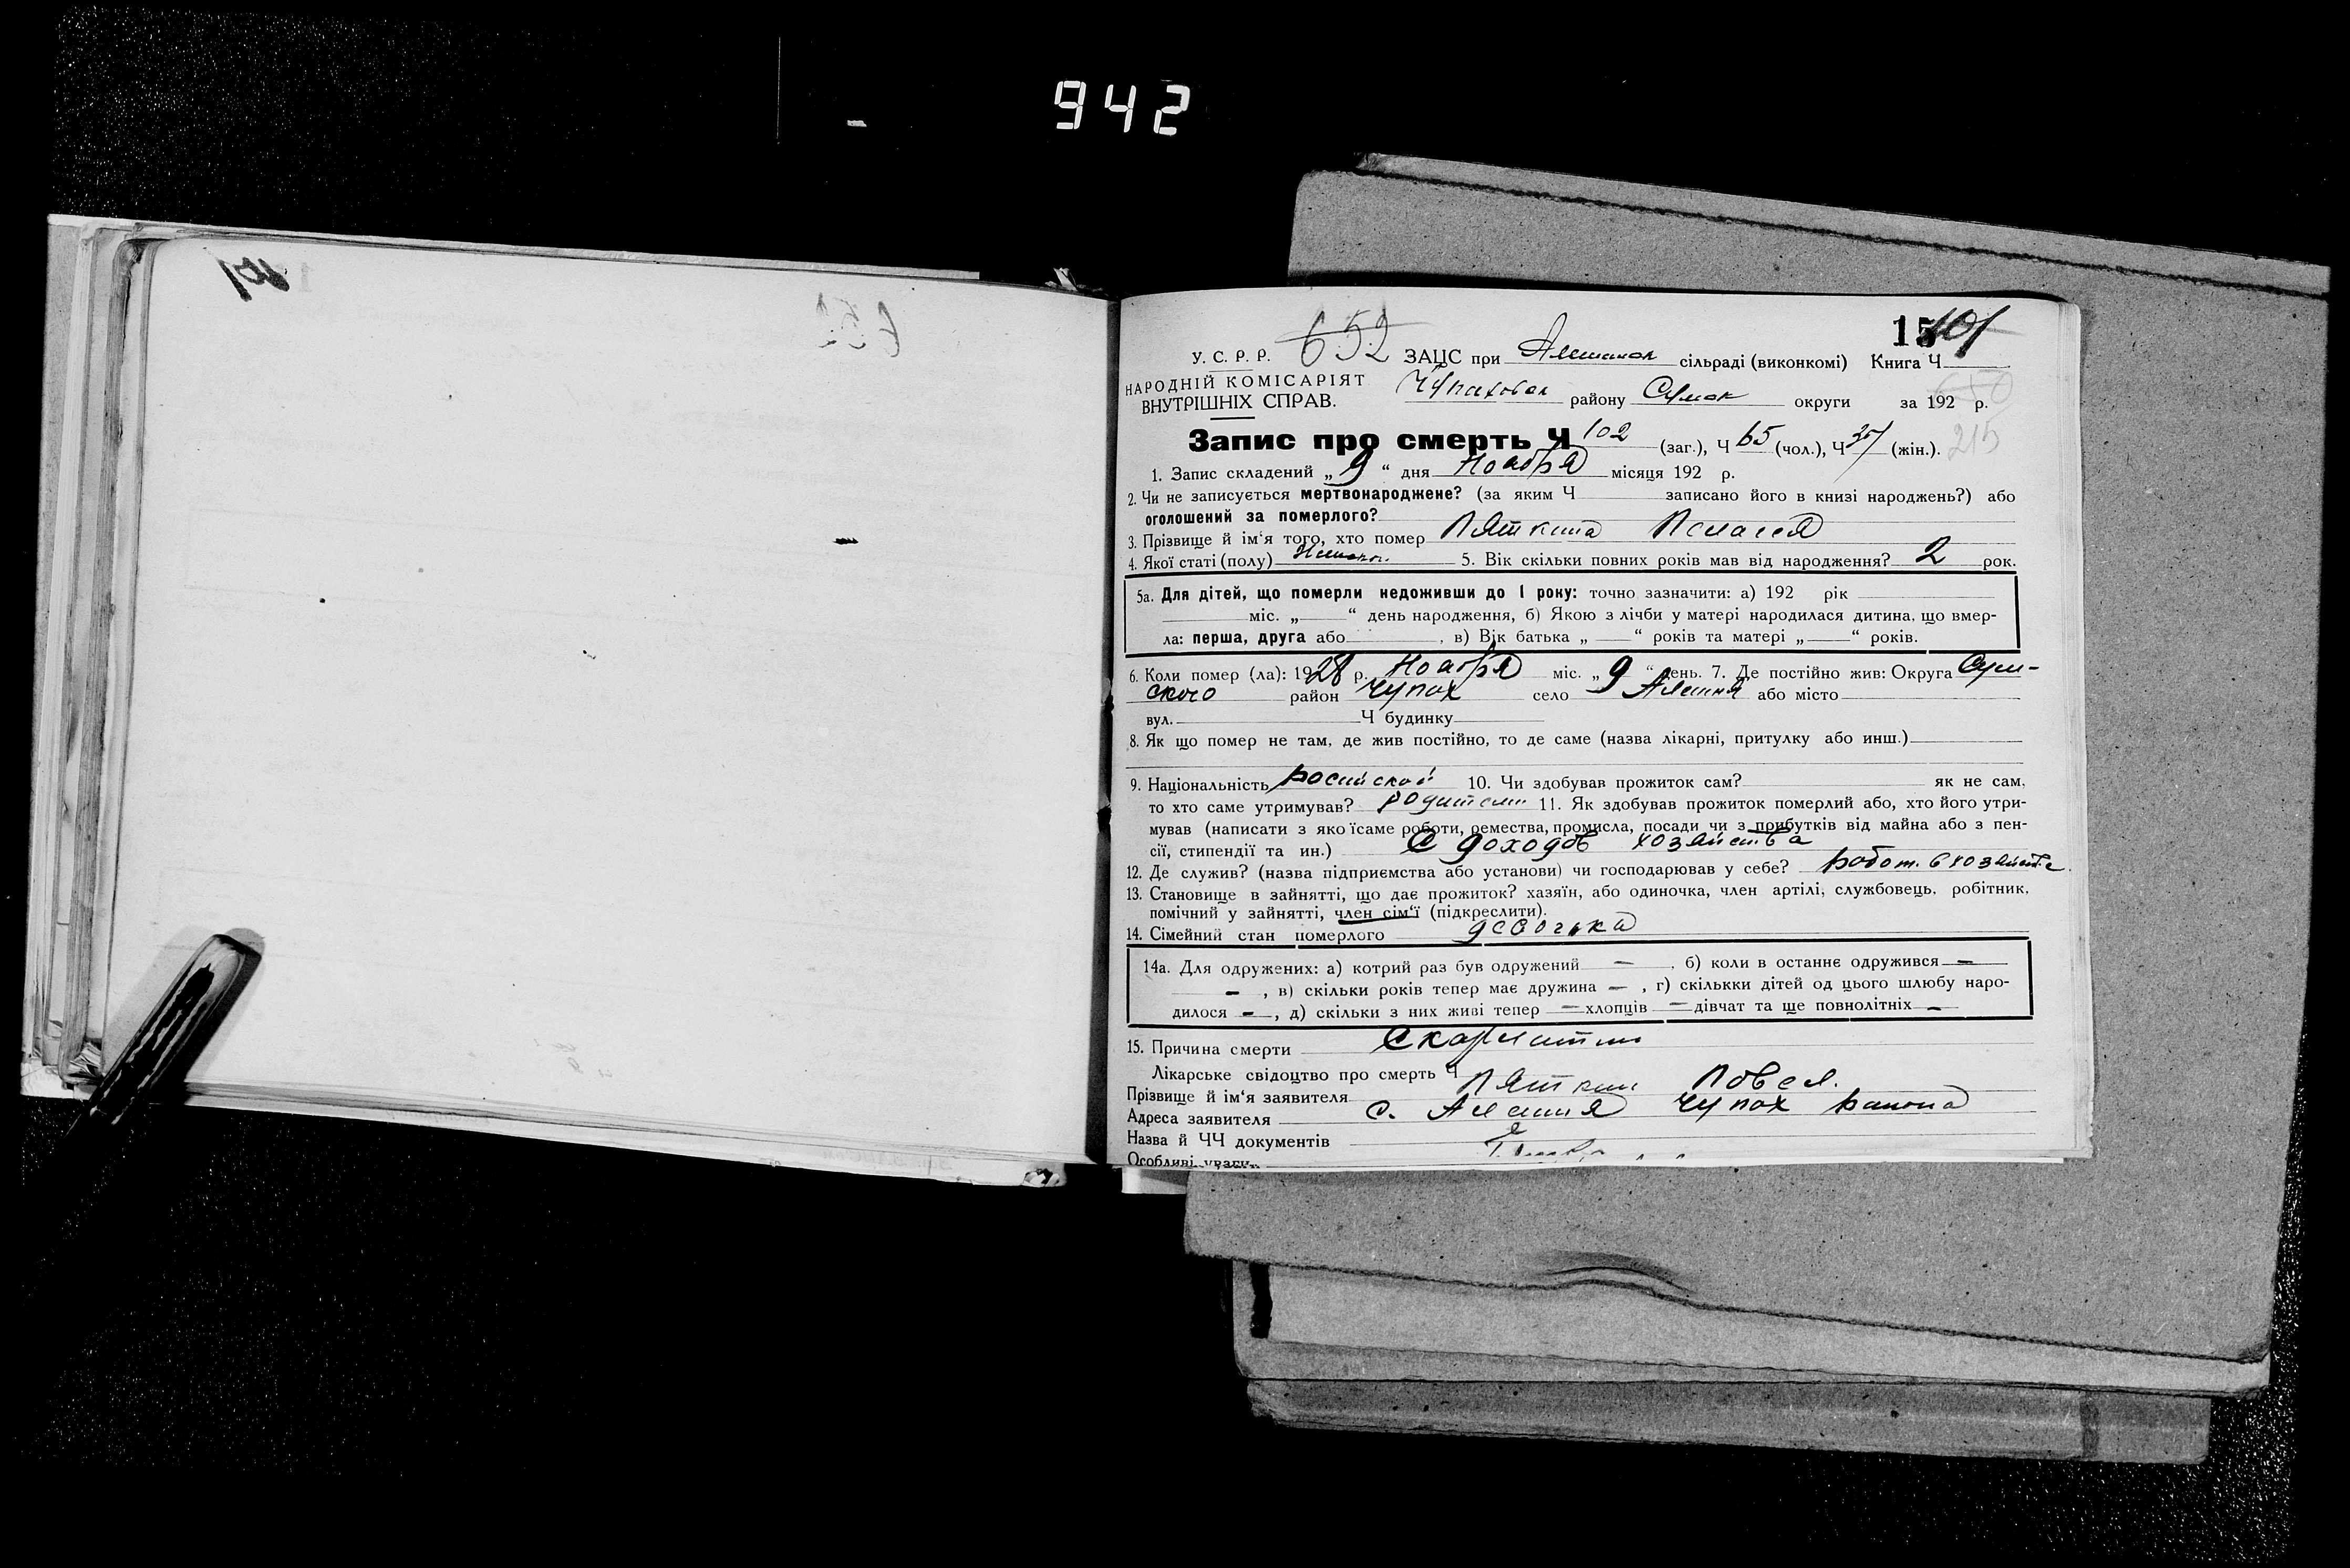 942
652
У. С. Р. Р.
ЗАЦС при Алешинск сільраді (виконкомі) Книга Ч
101
НАРОДНІЙ КОМІСАРІЯТ
ВНУТРІШНІХ СПРАВ.
Чупаховск району Сумск округи за 192 р.
215
Запис про смерть Ч 102 (заг.), Ч 65 (чол.), Ч (жін.).
1. Запис складений „ 9 “ дня Ноября місяця 192 р.
2. Чи не записується мертвонароджене? (за яким Ч записано його в книзі народжень?) або
оголошений за померлого?
3. Прізвище й ім‘я того, хто помер Пяткина Пелагея
4. Якої статі (полу) 5. Вік скільки повних років мав від народження? 2 рок.
5а. Для дітей, що померли недоживши до 1 року: точно зазначити: а) 192 рік
міс. „ “ день народження, б) Якою з лічби у матері народилася дитина, що вмер-
ла: перша, друга або , в) Вік батька „ “ років та матері „ “ років.
6. Коли помер (ла): 1928 р. Ноября міс. „ 9 “ день. 7. Де постійно жив: Округа Сум-
ского район Чупах село Алешня або місто
вул. Ч будинку
8. Як що помер не там, де жив постійно, то де саме (назва лікарні, притулку або инш.)
9. Національність Росийской 10. Чи здобував прожиток сам? як не сам,
то хто саме утримував? родители 11. Як здобував прожиток померлий або, хто його утри-
мував (написати з якоїсаме роботи, ремества, промисла, посади чи з прибутків від майна або з пен-
сії, стипендії та ин.) С доходов хозяйства
12. Де служив? (назва підприємства або установи) чи господарював у себе? работ. в хозяйстве
13. Становище в зайнятті, що дає прожиток? хазяїн, або одиночка, член артілі, службовець, робітник,
помічний у зайнятті, член сім‘ї (підкреслити).
14. Сімейний стан померлого девочька
14а. Для одружених: а) котрий раз був одружений — , б) коли в останнє одружився —
— , в) скільки років тепер має дружина — , г) скількки дітей од цього шлюбу наро-
дилося — , д) скільки з них живі тепер — хлопців — дівчат та ще повнолітніх —
15. Причина смерти Скарлатин
Лікарське свідоцтво про смерть Ч
Прізвище й ім‘я заявителя Пяткин Повел.
Адреса заявителя с. Алешня Чупах района
Назва й ЧЧ документів
Особливі уваги